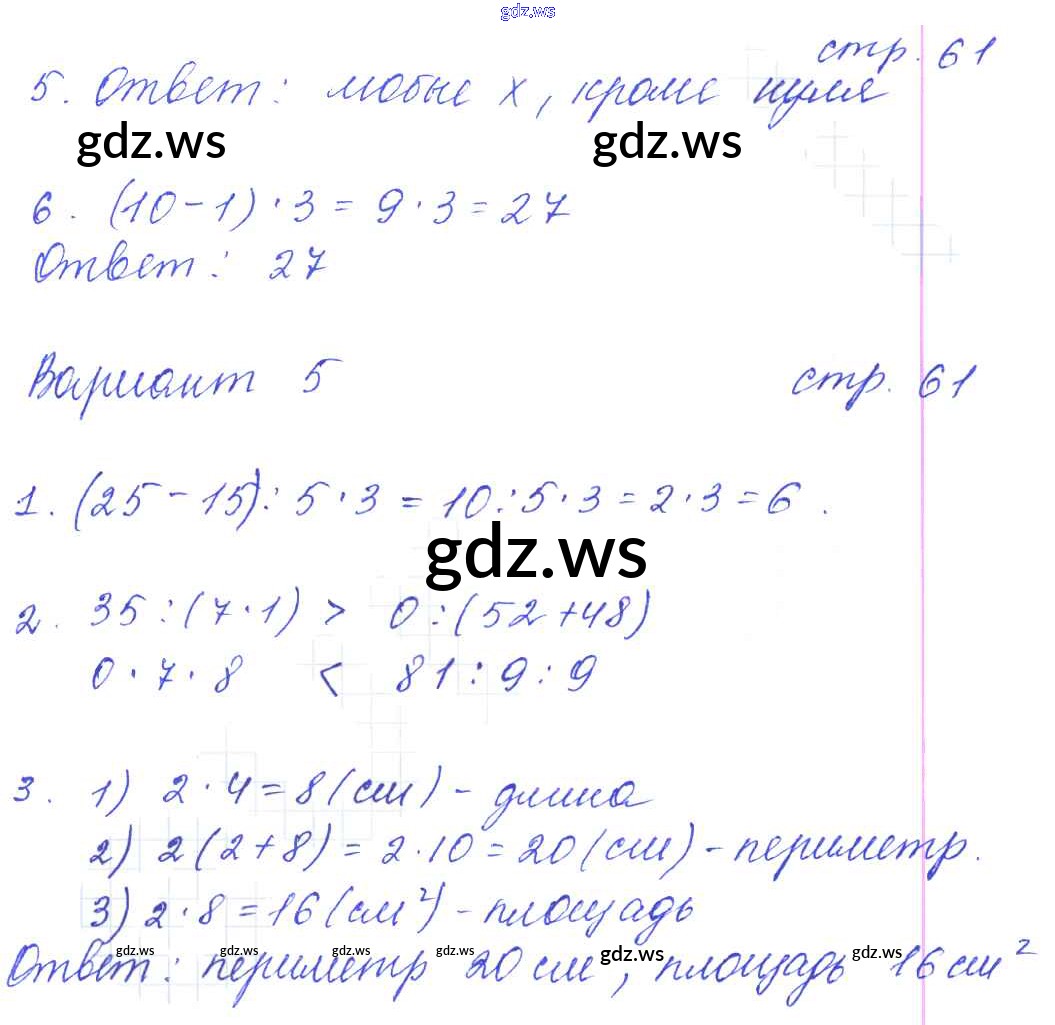 gdz.ws
стр. 61
5. Ответ: любые x, кроме нуля
gdz.ws gdz.ws
6. (10-1)·3=9·3=27
Ответ: 27
Вариант 5 стр. 61
1. (25-15):5·3=10:5·3=2·3=6.
gdz.ws
2. 35:(7·1) > 0:(52+48)
0·7·8 < 81:9:9
3. 1) 2·4=8(см)-длина
2) 2(2+8)=2·10=20(см)-периметр.
3) 2·8=16(см²)-площадь
gdz.ws gdz.ws gdz.ws gdz.ws gdz.ws
Ответ: периметр 20 см, площадь 16 см²